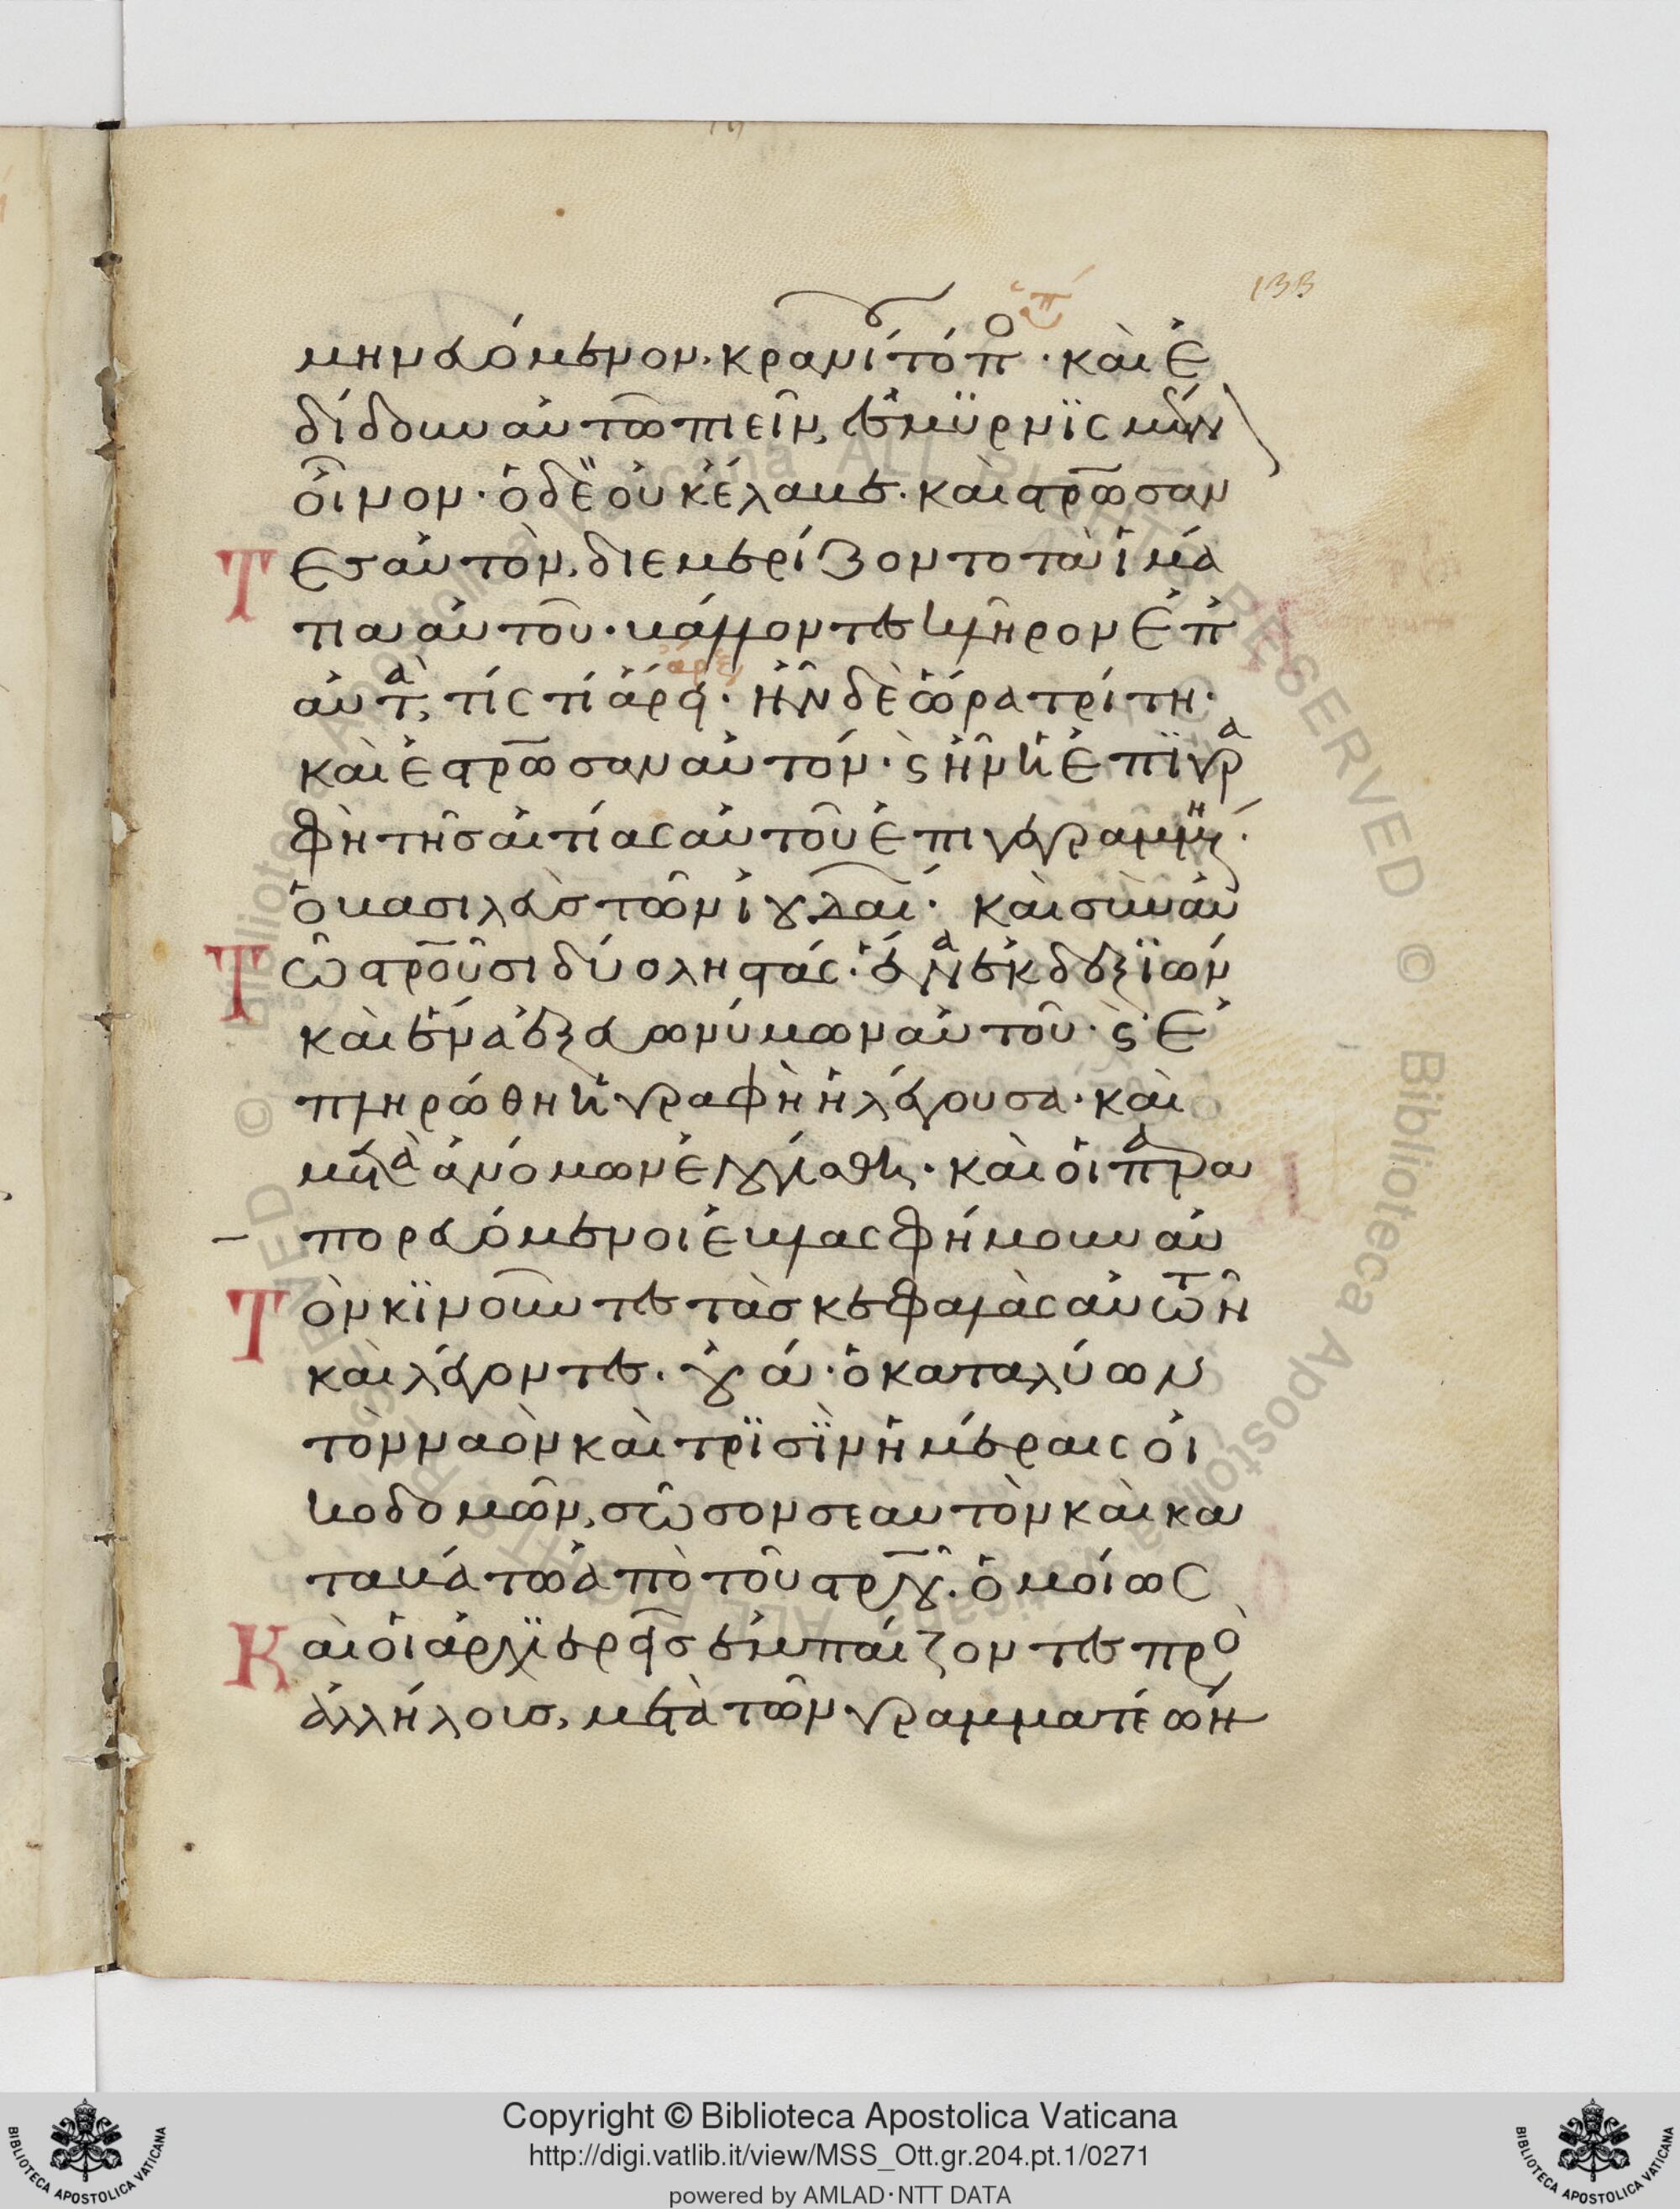 133
μηνευόμενον· κρανί τόπο · καὶ ἐ
δίδουν αὐτῶ πιεῖν, ἐσμυρνϊσμένον
οἶνον· ὁ δὲ οὐκ ἔλαβε· καὶ σταυρώσαν
τες αὐτὸν, διεμερίζοντο τὰ ἱμά
τια αὐτοῦ· βάλλοντες κλῆρον ἐπ
αὐτὰ, τίς τί ἄρη· ἦν δὲ ὥρα τρίτη·
καὶ ἐσταύρωσαν αὐτόν· ϛ ἦν ἡ ἐπϊγρα
φὴ τῆς αἰτίας αὐτοῦ ἐπιγεγραμμένη·
ὁ βασιλεὺς τῶν ἰουδαί· καὶ σὺν αὐ
τῶ σταυροῦσι δύο ληστάς· ἕνα ἐκ δεξϊῶν
καὶ ἕνα ἐξ εὐωνύμων αὐτοῦ· ϛ ἐ
πληρώθη ἡ γραφὴ ἡ λέγουσα· καὶ
μετὰ ἀνόμων ἐλογίσθη· καὶ οἱ παρα
πορευόμενοι ἐβλασφήμουν αὐ
τὸν κϊνοῦντες τὰς κεφαλὰς αὐτῶν
καὶ λέγοντες· οὐά· ὁ καταλύων
τὸν ναὸν καὶ τρϊσῒν ἡμέραις οἰ
κοδομῶν, σῶσον σεαυτὸν καὶ κα
τάβα τῶ ἀπὸ τοῦ σταυροῦ· ὁμοίως
Καὶ οἱ ἀρχϊερεῖς ἐμπαίζοντες πρὸ
ἀλλήλοις, μετὰ τῶν γραμματέων
Copyright © Biblioteca Apostolica Vaticana
http://digi.vatlib.it/view/MSS_Ott.gr.204.pt.1/0271
powered by AMLAD·NTT DATA
BIBLIOTECA APOSTOLICA VATICANA
BIBLIOTECA APOSTOLICA VATICANA